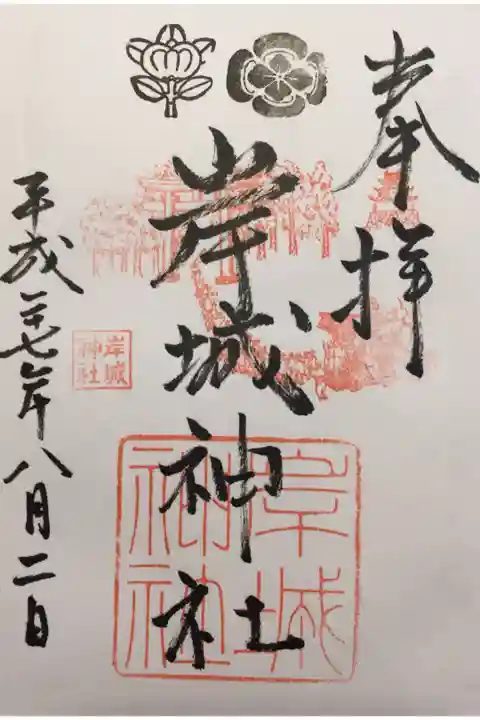 奉拝
岸城神社
岸城
神社
岸城
神社
平成二十七年八月二日